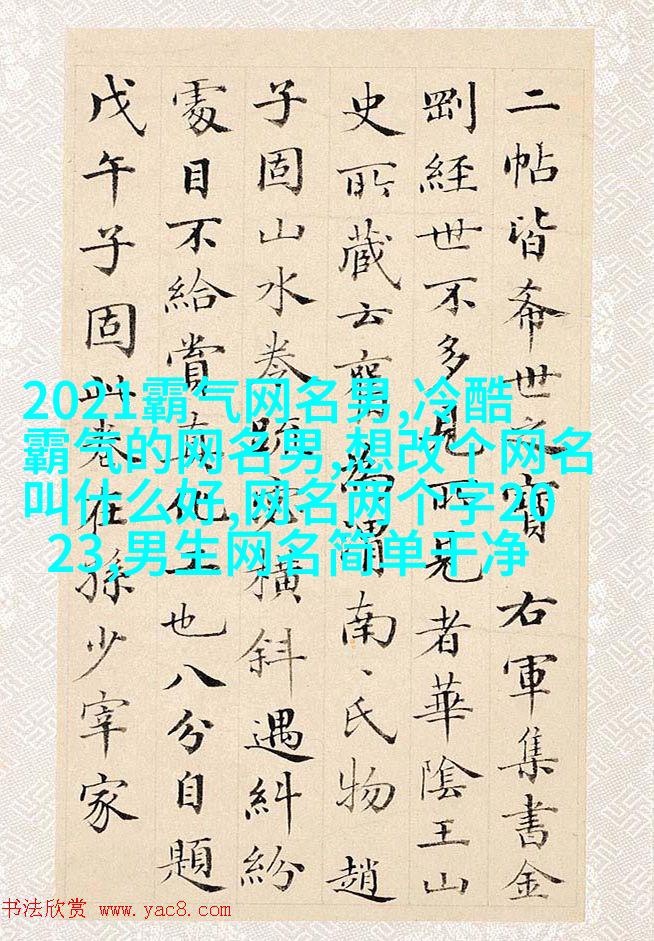 二帖皆希世之寶 右軍集書金
剛經世不多見所見者華陰王山
史所藏云為謂南、氏物趙
子固山水卷疏橫斜遇糾紛
處目不給賞真化工也八分自題
戊午子固此卷在孫少宰家
2021霸气网名男,冷酷
霸气的网名男,想改个网名
叫什么好,网名两个字20
23,男生网名简单干净
书法欣赏 www.yac8.com